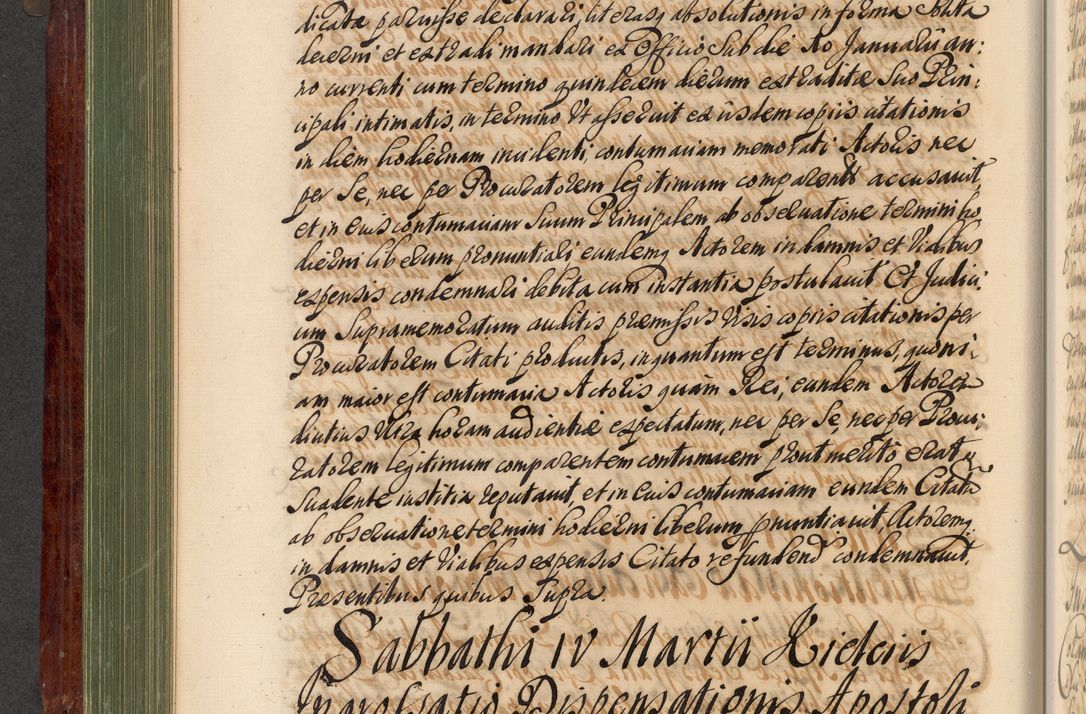 dicata paruisse declarari, literasq absolutionis in forma
decerni et extradi mandari ex Officio sub die Januarii an:
no currenti cum termino quindecem dierum extraditæ Suo Prin:
cipali intimatis, in termino Ut asseruit ex iisdem copiis citationis
in diem hodiernam incidenti, contumaciam memorati Actoris nec
per Se, nec per Procuratorem legitimum comparentis accusavit,
et in eius contumaciam Suum Principalem ab observatione termini ho
dierni liberum pronuntiari eundemq Actorem in damnis et Vialibus
expensis condemnari debita cum instantia postulavit Et Judici:
um Supramemoratum auditis præmissis Visis copiis citationis per
Procuratorem Citati productis, in quantum est terminus, quoni:
am maior est contumacia Actoris quàm Rei, eundem Actorem
diutius Ultra horam audientiæ expectatum, nec per Se, nec per Procu:
ratorem legitimum comparentem contumacem prout merito erat
Suadente iustitia reputavit, et in eius contumaciam eundem Citatu
ab observatione termini hodierni liberum pnuntiavit Actoremq
in damnis et Vialibus expensis Citato refundend condemnavit.
Præsentibus quibus Supra.
Sabbathi IV Martii Kielciis
Ingrossatio Dispensationis Apostoli